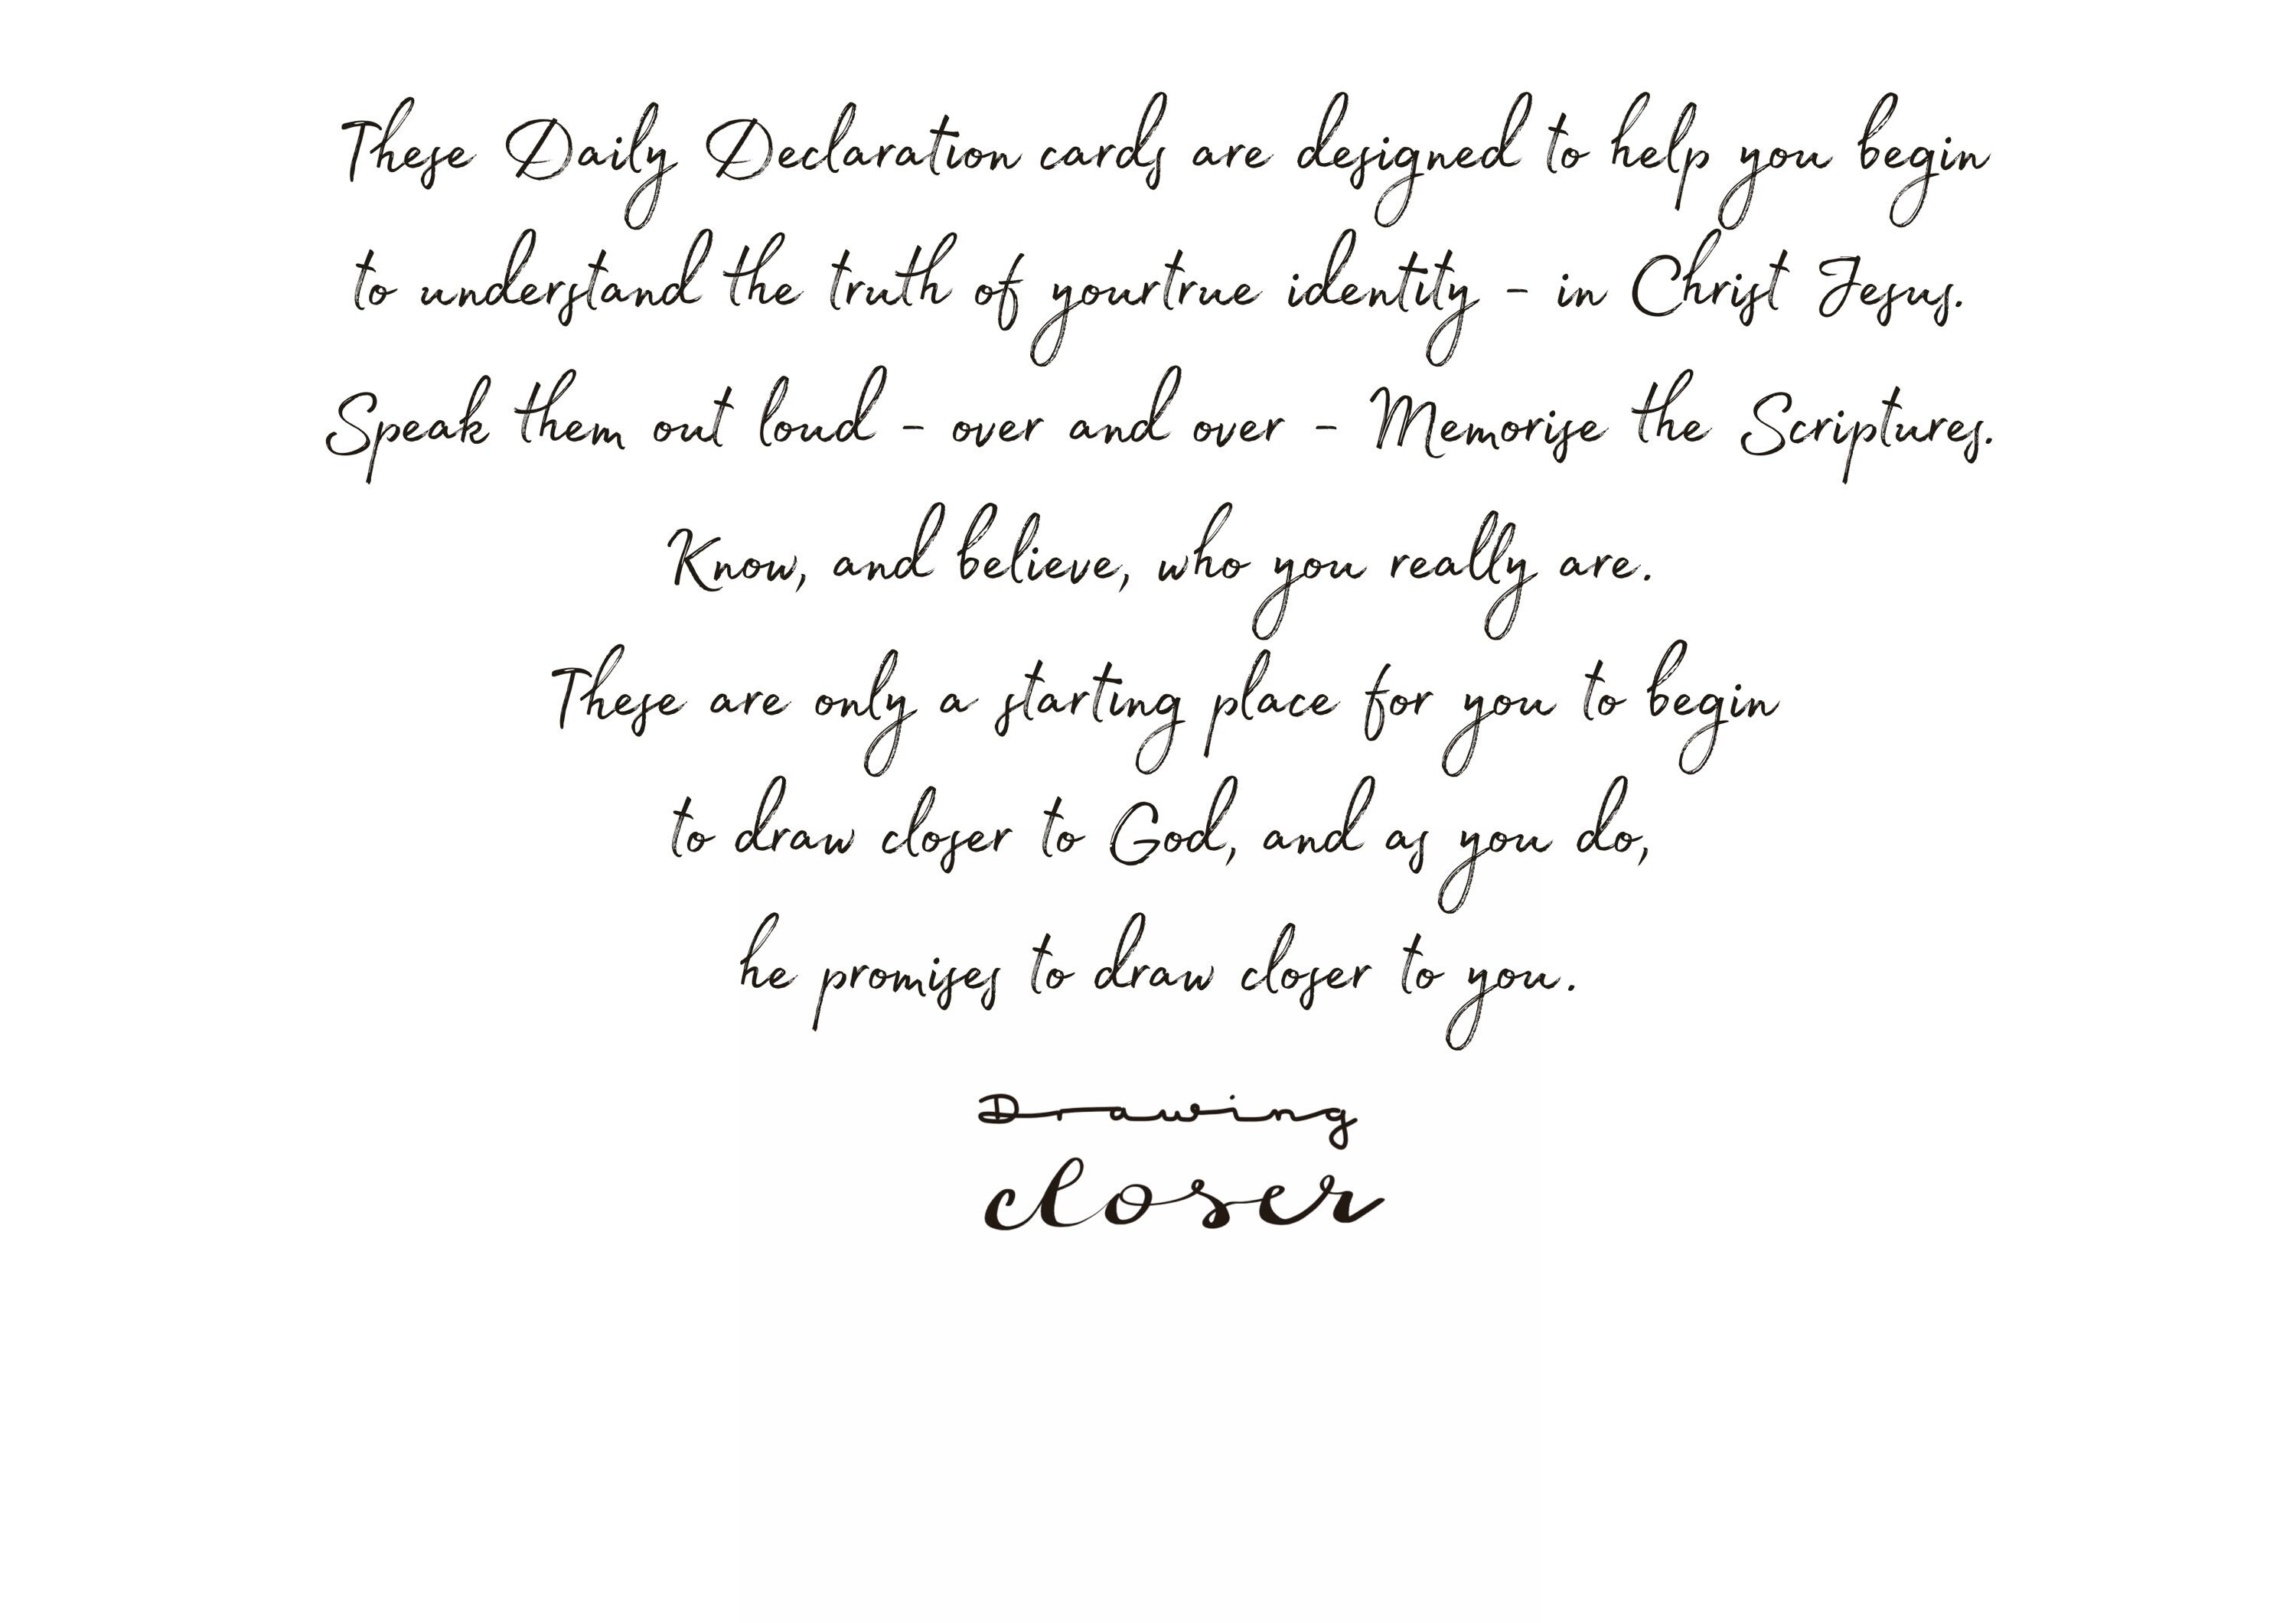 These Daily Declaration cards are designed to help you begin
to understand the truth of yourtrue identity - in Christ Jesus.
Speak them out loud - over and over - Memorise the Scriptures.
Know, and believe, who you really are.
These are only a starting place for you to begin
to draw closer to God, and as you do,
he promises to draw closer to you.
Drawing
closer